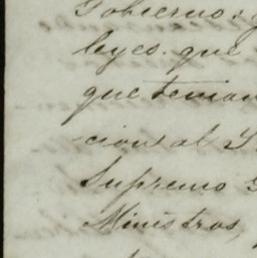 Gobierno
leyes que
que tenian
cion al
Supremo
Ministros,